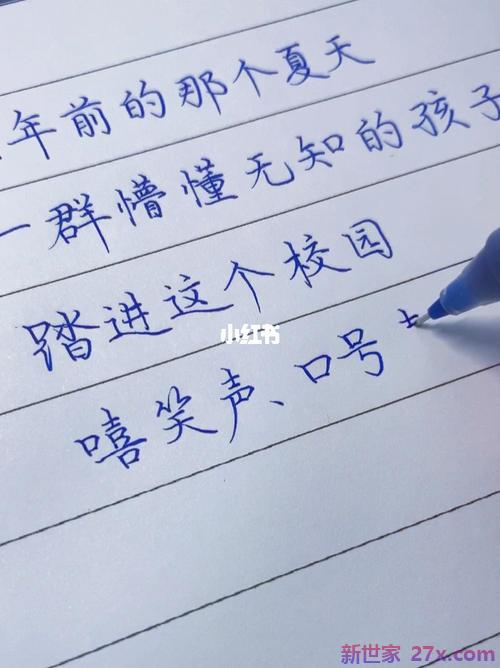 年前的那个夏天
一群懵懂无知的孩子
踏进这个校园
嘻笑声、口号
小红书
新世家 27x.com